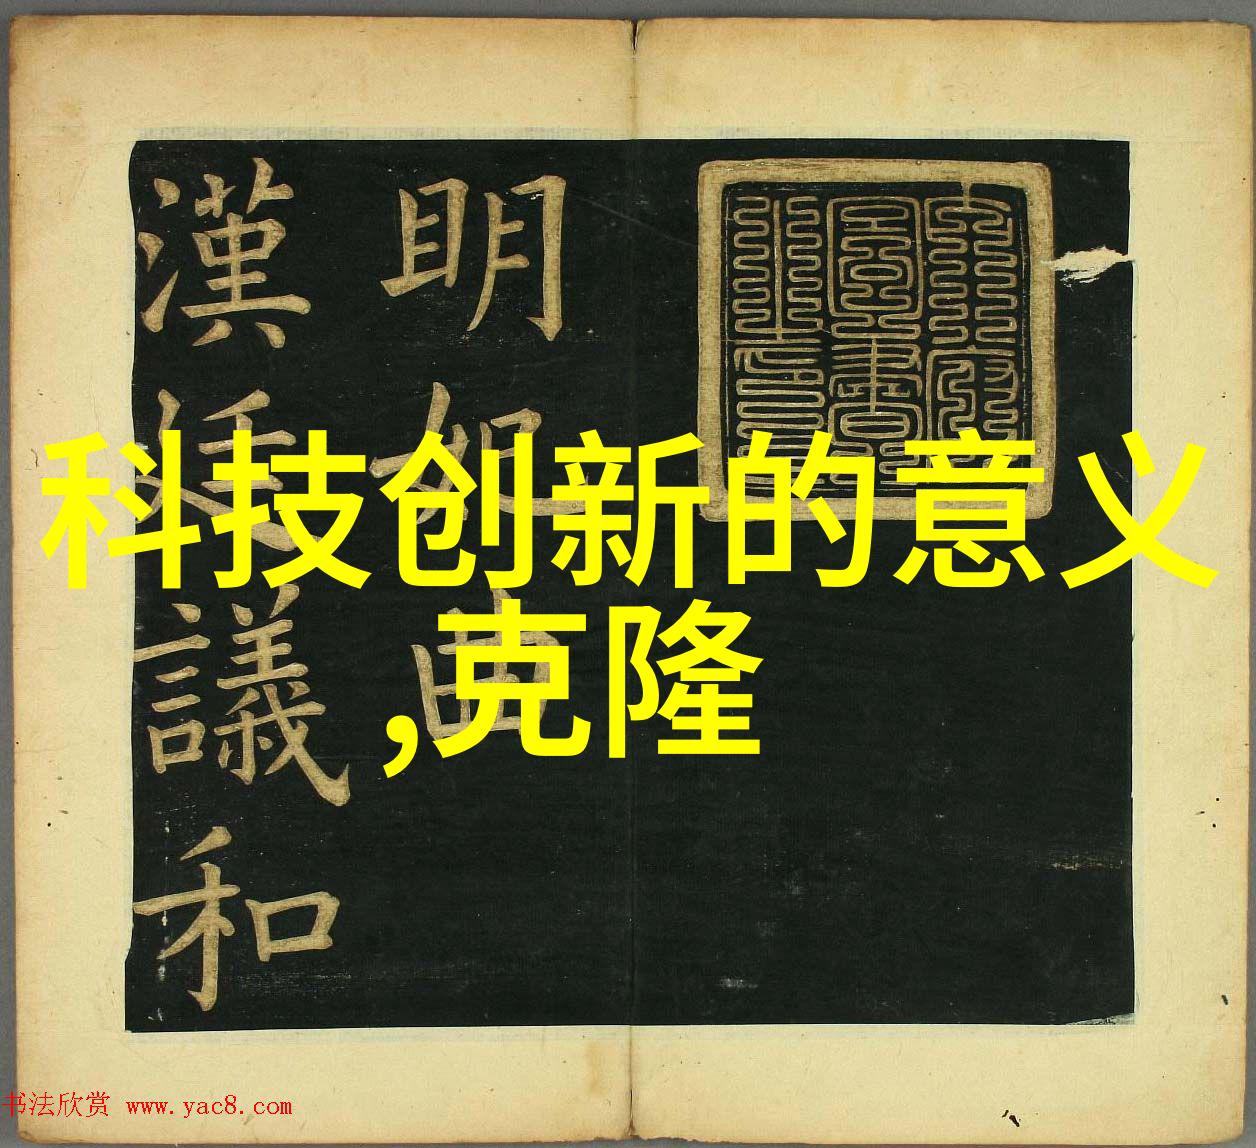 明妃曲
漢廷議和
科技创新的意义
,克隆
书法欣赏 www.yac8.com